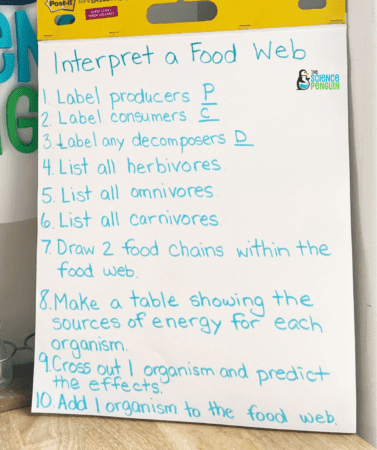 Post-it
Interpret a Food Web
THE
SCIENCE
PENGUIN
1. Label producers P
2. Label consumers C
3. Label any decomposers D
4. List all herbivores
5. List all omnivores
6. List all carnivores
7. Draw 2 food chains within the
food web.
8. Make a table showing the
sources of energy for each
organism.
9. Cross out 1 organism and predict
the effects.
10. Add 1 organism to the food web.